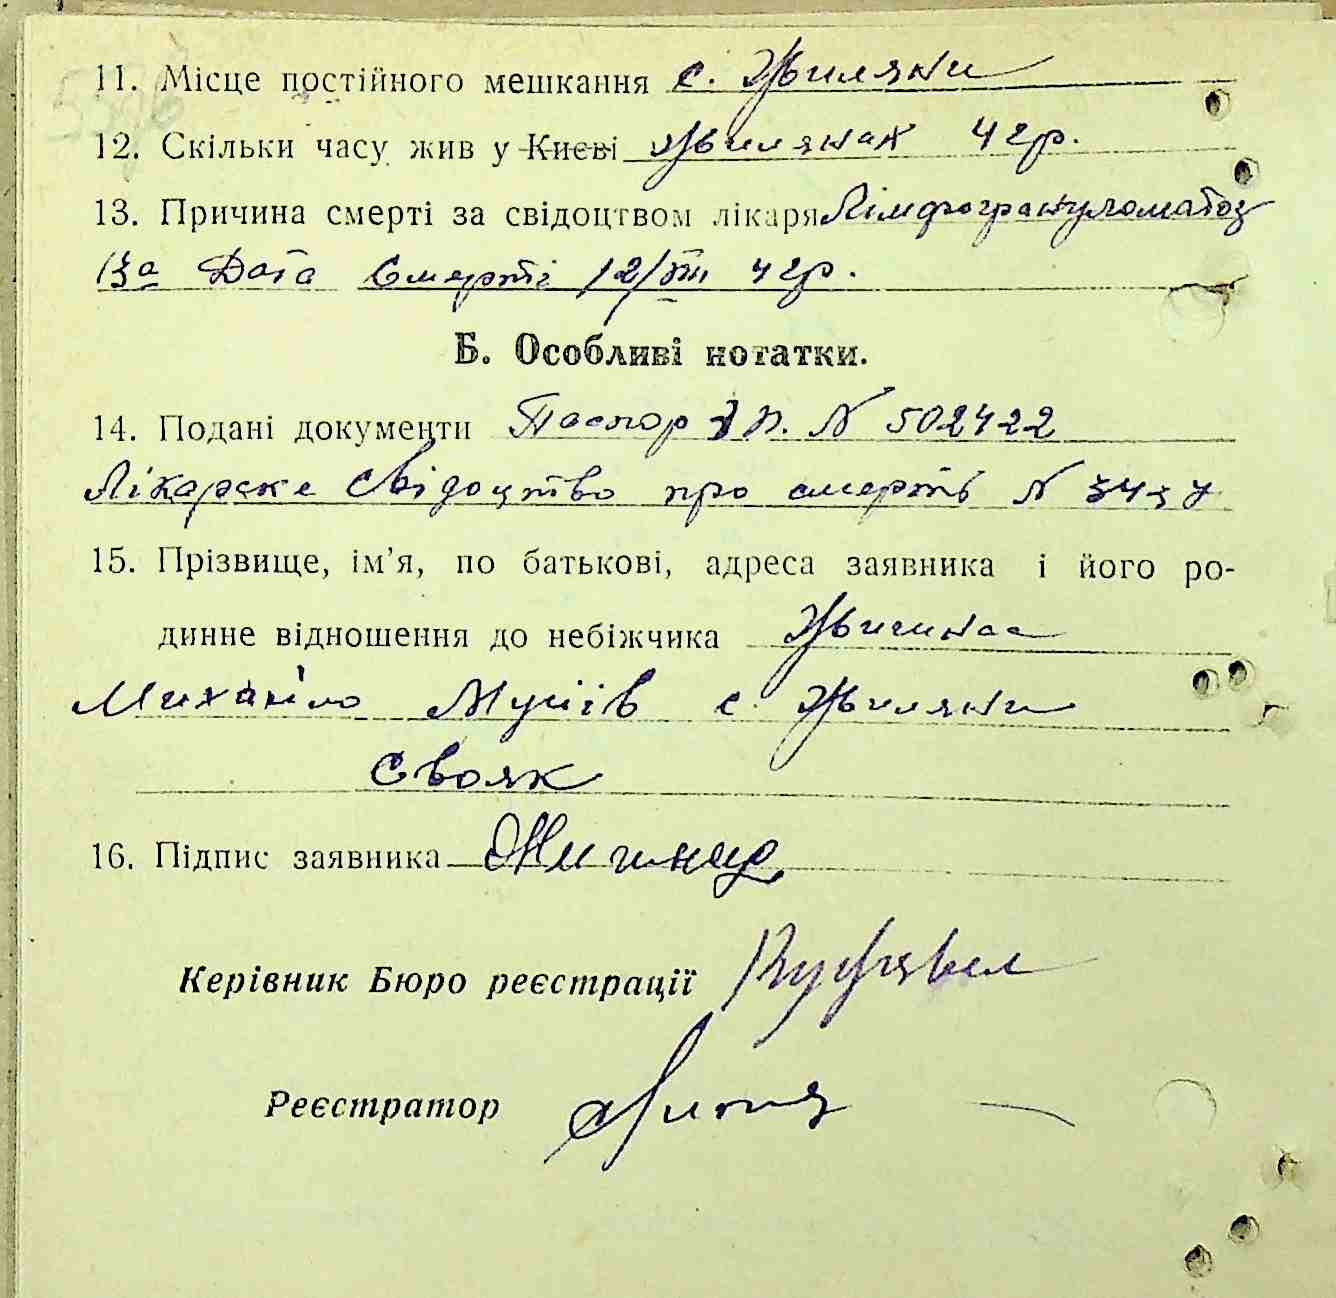 11. Місце постійного мешкання с. Жиляни
12. Скільки часу жив у Києві Жилянах 42р.
13. Причина смерті за свідоцтвом лікаря Лімфогрануломатоз
13а Дата Смерті 12/VIII 42р.
Б. Особливі нотатки.
14. Подані документи Паспорт N 502422
Лікарске свідоцтво про смерть N 3437
15. Прізвище, ім’я, по батькові, адреса заявника і його ро-
динне відношення до небіжчика
Михайло с. Жиляни
Свояк
16. Підпис заявника
Керівник Бюро реєстрації
Реєстратор